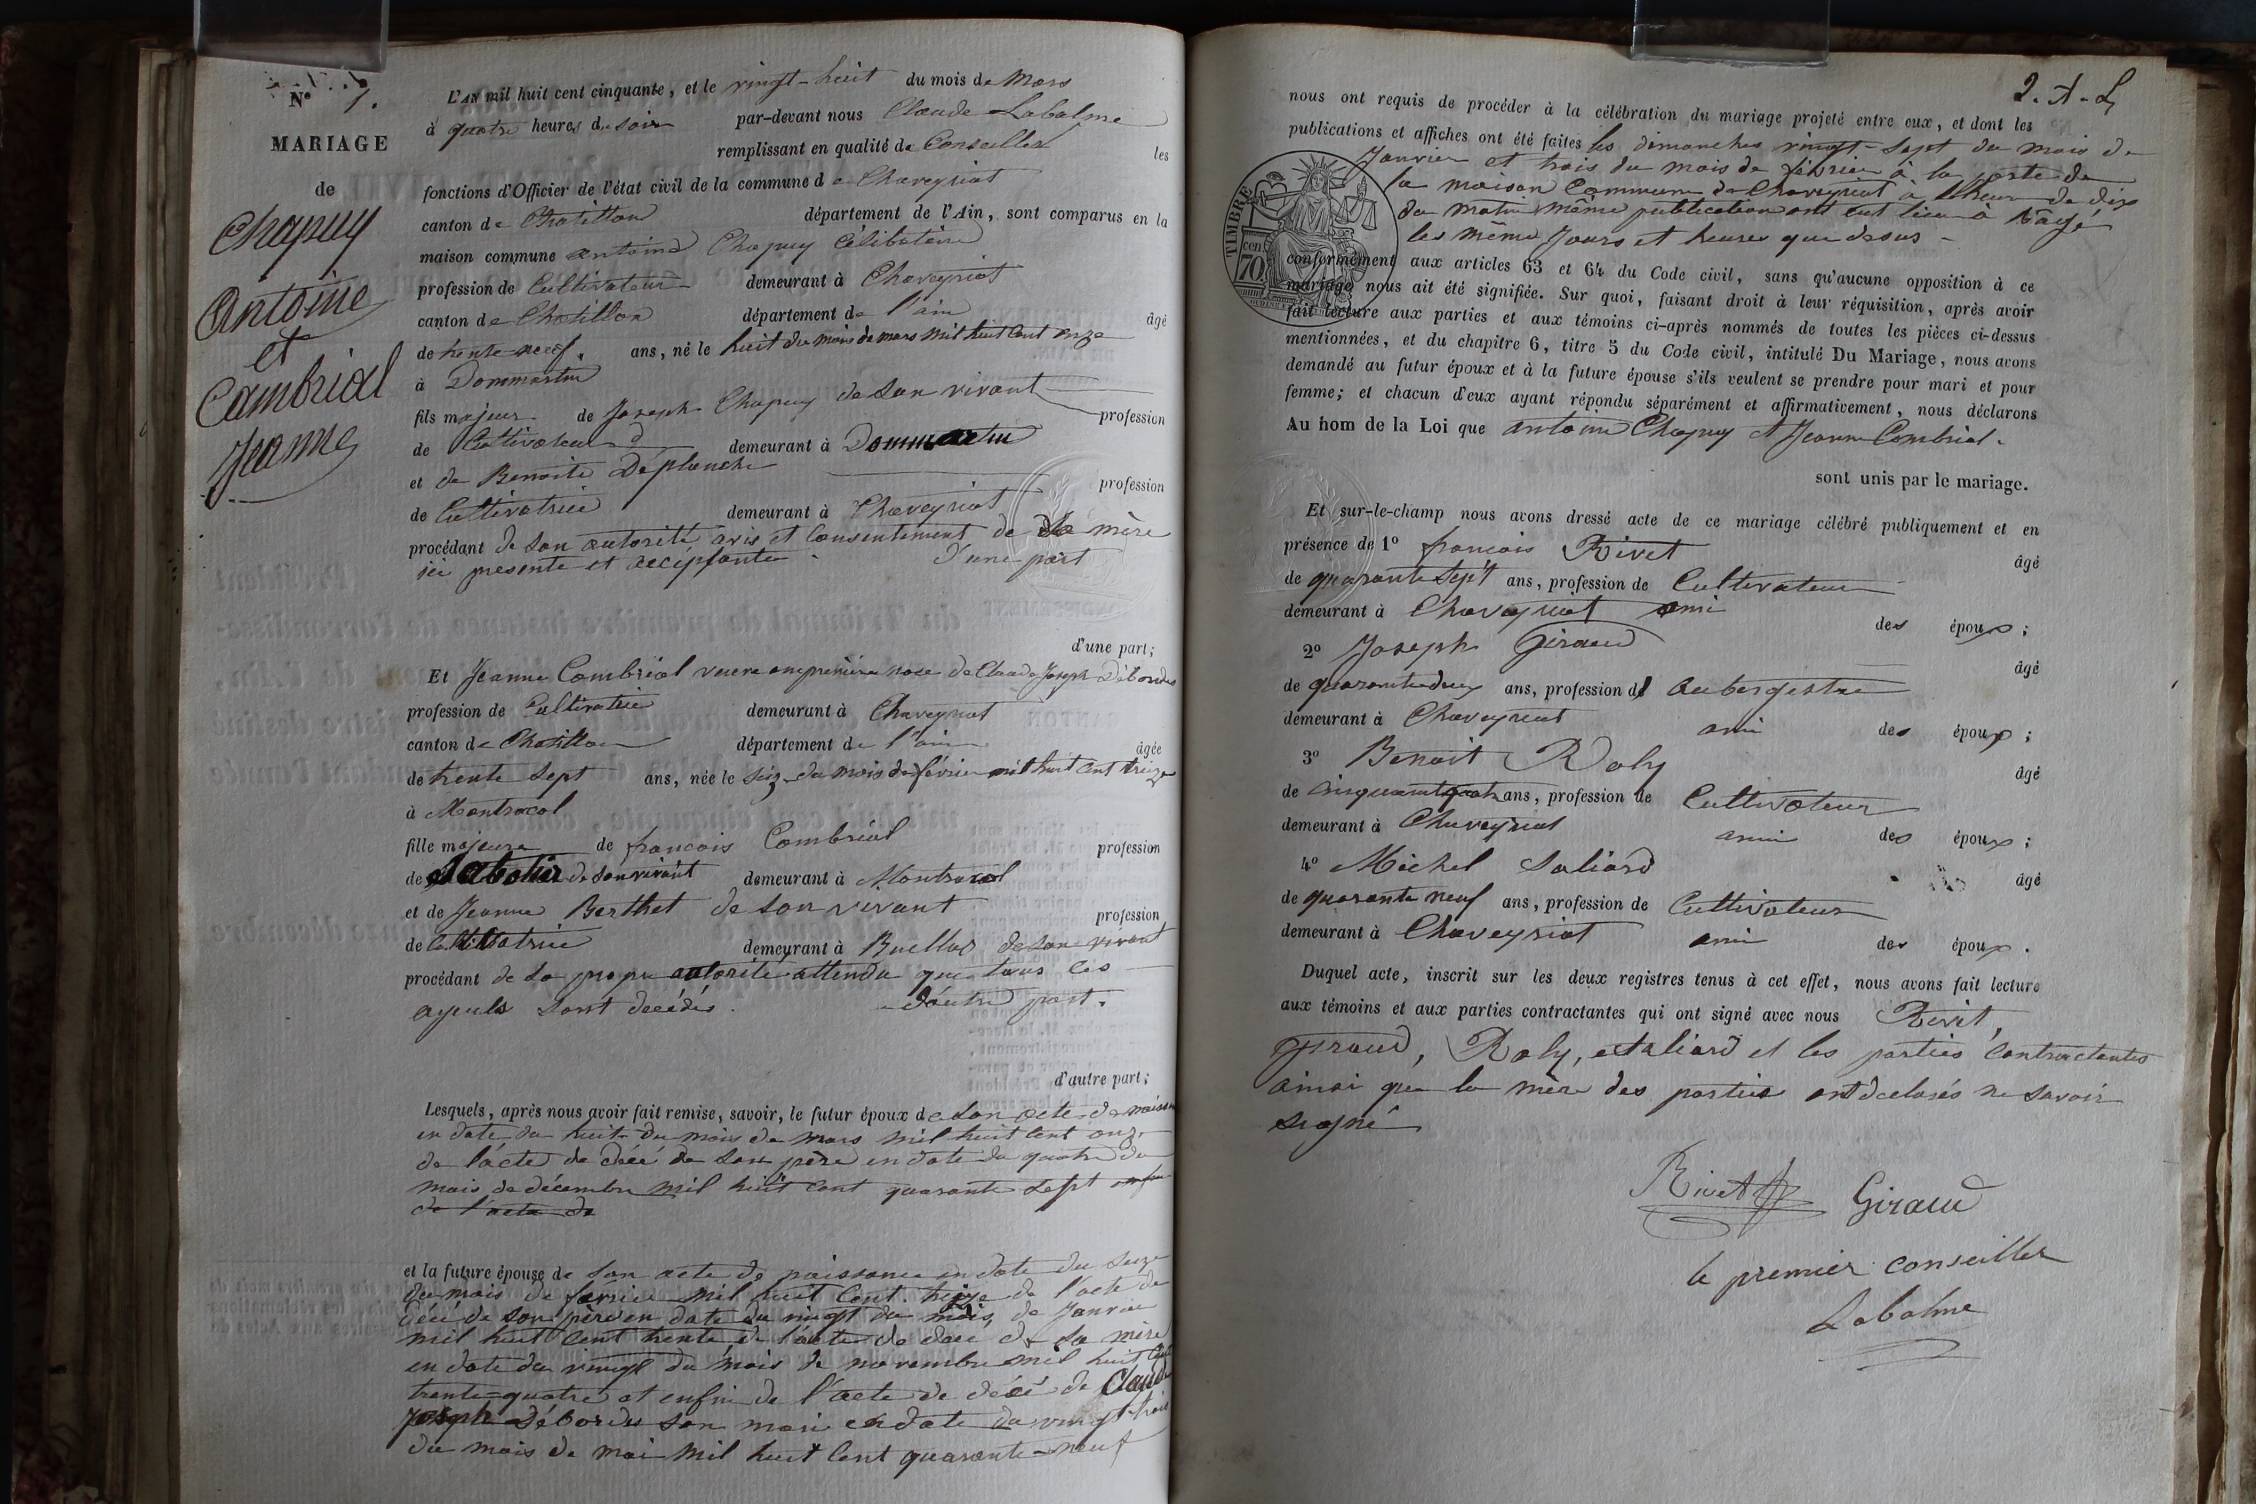 N° 1.
MARIAGE
de
Chapuy
Antoine
et
Cambrial
Jeanne
L'AN mil huit cent cinquante, et le vingt-huit du mois de Mars
à quatre heures du soir par-devant nous Claude Labalme
remplissant en qualité de Conseiller les
fonctions d'Officier de l'état civil de la commune de Chaveyriat
canton de Chatillon département de l'Ain, sont comparus en la
maison commune antoine Chapuy célibataire
profession de Cultivateur demeurant à Chaveyriat
canton de Chatillon département de l'ain âgé
de trente neuf. ans, né le huit du mois de mars mil huit cent onze
à Dommartin
fils majeur de Joseph Chapuy de son vivant profession
de Cultivateur demeurant à Dommartin
et de Benoite Déplanche profession
de Cultivatrice demeurant à Chaveyriat
procédant de son autorité avis et Consentement de sa mère
ici presente et accéptante d'une part
d'une part;
Et Jeanne Combrial veuve en première nose de Claude Joseph Débordes
profession de Cultivatrice demeurant à Chaveyriat
canton de Chatillon département de l'ain âgée
de trente sept ans, née le seize du mois de février mil huit cent treize
à Montracol
fille majeure de francois Combrial profession
de de son vivant demeurant à Montracol
et de Jeanne Berthet de son vivant profession
de Cultivatrice demeurant à Buellas de son vivant
procédant de sa propre autorité attendu que tous les
ayeuls sont décédés. d'autre part.
d'autre part;
Lesquels, après nous avoir fait remise, savoir, le futur époux de son acte de naissance
en date du huit du mois de mars mil huit cent onze
de l'acte de décé de son père en date du quatre du
mois de décembre mil huit cent quarante sept enfin
de l'acte de
et la future épouse de son acte de naissance en date du seize
du mois de février mil huit cent treize de l'acte de
décé de son père en date du vingt du mois de Janvier
mil huit cent trente de l'acte de décé de sa mère
en date du vingt du mois de novembre mil huit cent
trente-quatre et enfin de l'acte de décé de Claude
Joseph Débordes son mari en date du vingt trois
du mois de mai mil huit cent quarante-neuf
2. A-L
nous ont requis de procéder à la célébration du mariage projeté entre eux, et dont les
publications et affiches ont été faites les dimanches vingt-sept du mois de
Janvier et trois du mois de février à la porte de
la maison Commune de Chaveyriat à l'heure de dix
du matin même publication ont eut lieu à
les même Jours et heures que desus -
TIMBRE
cen
70
conformément aux articles 63 et 64 du Code civil, sans qu'aucune opposition à ce
mariage nous ait été signifiée. Sur quoi, faisant droit à leur réquisition, après avoir
fait lecture aux parties et aux témoins ci-après nommés de toutes les pièces ci-dessus
mentionnées, et du chapitre 6, titre 5 du Code civil, intitulé Du Mariage, nous avons
demandé au futur époux et à la future épouse s'ils veulent se prendre pour mari et pour
femme; et chacun d'eux ayant répondu séparément et affirmativement, nous déclarons
Au nom de la Loi que antoine Chapuy et Jeanne Combrial.
sont unis par le mariage.
Et sur-le-champ nous avons dressé acte de ce mariage célébré publiquement et en
présence de 1° francois Rivet âgé
de quarante sept ans, profession de Cultivateur
demeurant à Chaveyriat ami des époux;
2° Joseph Giraud âgé
de quarante deux ans, profession d'aubergestre
demeurant à Chaveyriat ami des époux;
3° Benoit Roly âgé
de Cinquante quatre ans, profession de Cultivateur
demeurant à Chaveyriat ami des époux;
4° Michel Saliard âgé
de quarante neuf ans, profession de Cultivateur
demeurant à Chaveyriat ami des époux.
Duquel acte, inscrit sur les deux registres tenus à cet effet, nous avons fait lecture
aux témoins et aux parties contractantes qui ont signé avec nous Rivet,
Giraud, Roly, et Saliard et les parties Contractantes
ainsi que la mère des parties ont declarés ne savoir
signé
Rivet Giraud
le premier conseiller
Labalme